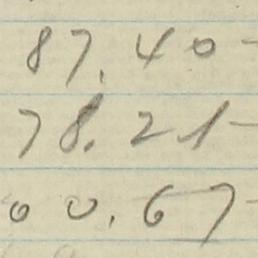 87.40-
78.21-
00.67-